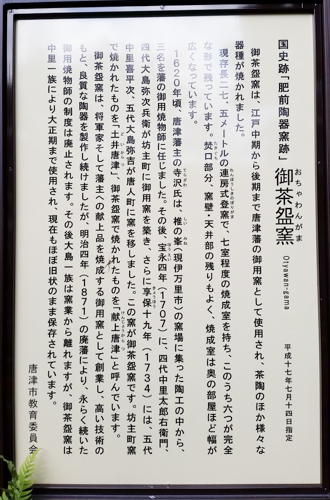 国史跡「肥前陶器窯跡」
おちゃわんがま
御茶盌窯
Otyawan-gama
平成十七年七月十四日指定
御茶盌窯は、江戸中期から後期まで唐津藩の御用窯として使用され、茶陶のほか様々な
器種が焼かれました。
現存長二七．五メートルの連房式登窯で、七室程度の焼成室を持ち、このうち六つが完全
な形で残っています。焚口部分、窯壁・天井部の残りもよく、焼成室は奥の部屋ほど幅が
広くなっています。
1620年頃、唐津藩主の寺沢氏は、椎の峯（現伊万里市）の窯場に集った陶工の中から、
三名を藩の御用焼物師に任じました。その後、宝永四年（1707）に、四代中里太郎右衛門、
四代大島弥次兵衛が坊主町に御用窯を築き、さらに享保十九年（1734）には、五代
中里喜平次、五代大島弥吉が唐人町に窯を移しました。この窯が御茶盌窯です。坊主町窯
で焼かれたものを「土井唐津」、御茶盌窯で焼かれたものを「献上唐津」と呼んでいます。
御茶盌窯は、将軍家そして藩主への献上品を焼成する御用窯として創業し、高い技術の
もと、良質な陶器を製作し続けましたが、明治四年（1871）の廃藩により、永らく続いた
御用焼物師の制度は廃止されます。その後大島一族は窯業から離れますが、御茶盌窯は
中里一族により大正期まで使用され、現在もほぼ旧状のまま保存されています。
唐津市教育委員会